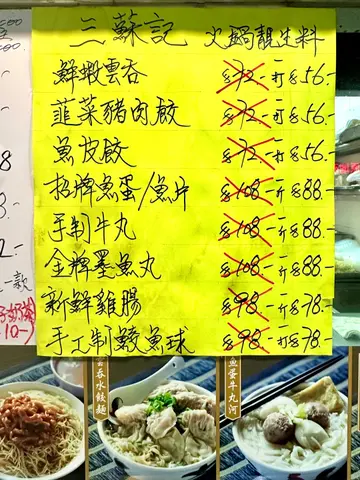 三蘇記 火鍋靚生料
鮮蝦雲吞 $72- 一打$56.-
韮菜豬肉餃 $72- 一打$56.-
魚皮餃 $72- 一打$56.-
招牌魚蛋/魚片 $108.- 一斤$88.-
手制牛丸 $108.- 一斤$88.-
金牌墨魚丸 $108.- 一斤$88.-
新鮮雞腸 $98.- 一斤$78.-
手工制鮫魚球 $98.- 一斤$78.-
一款
10-
雲吞水餃麵
魚蛋牛丸河